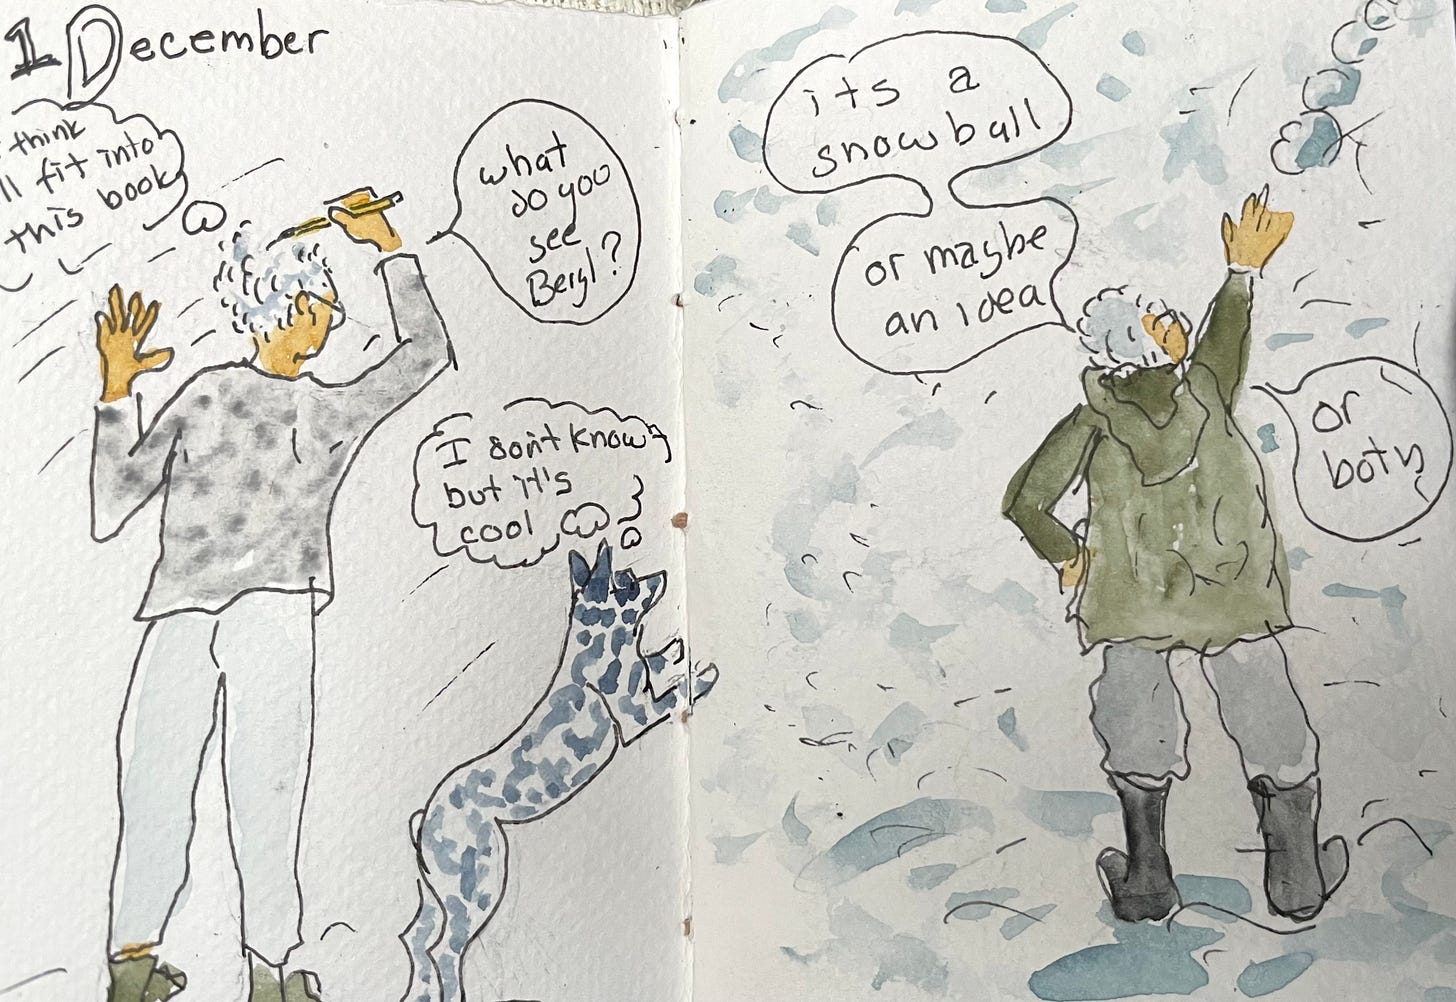 1 December
think
ll fit into
this book
what
do you
see
Beryl?
I don't know
but it's
cool
its a
snowball
or maybe
an idea
or
both